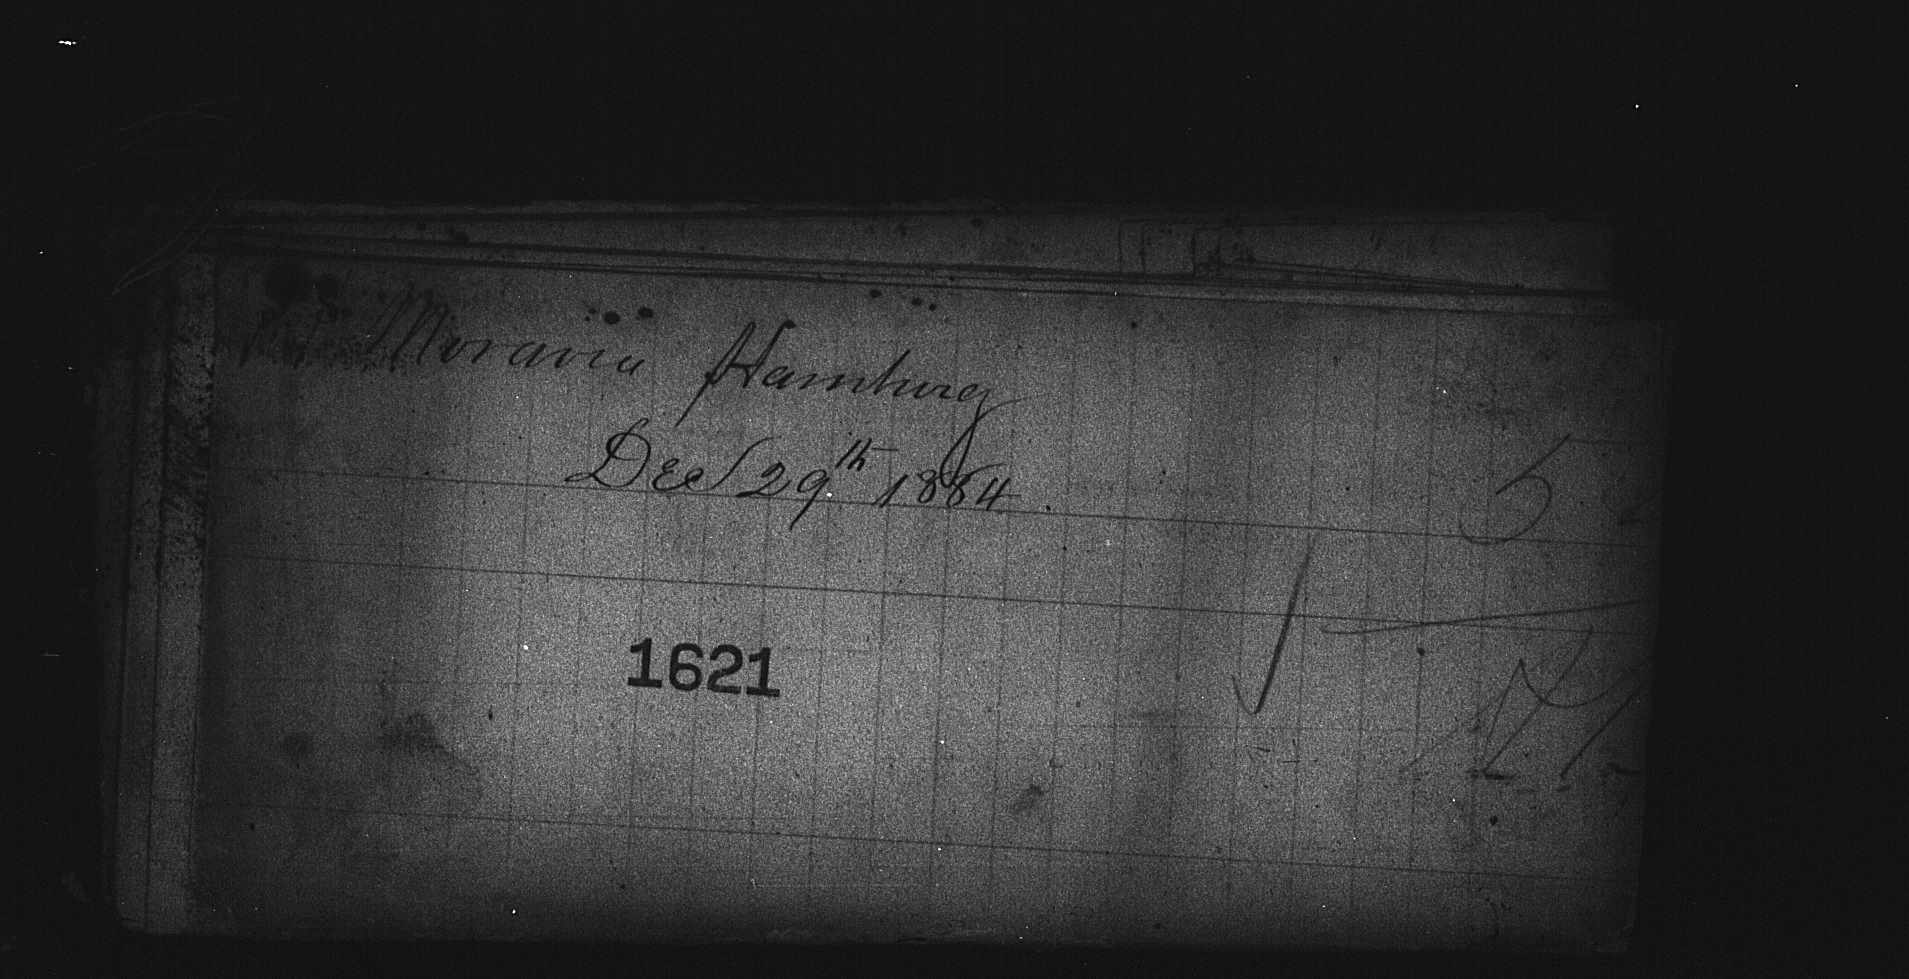 Moravia Hamburg
Dec 29th 1884
5
1621